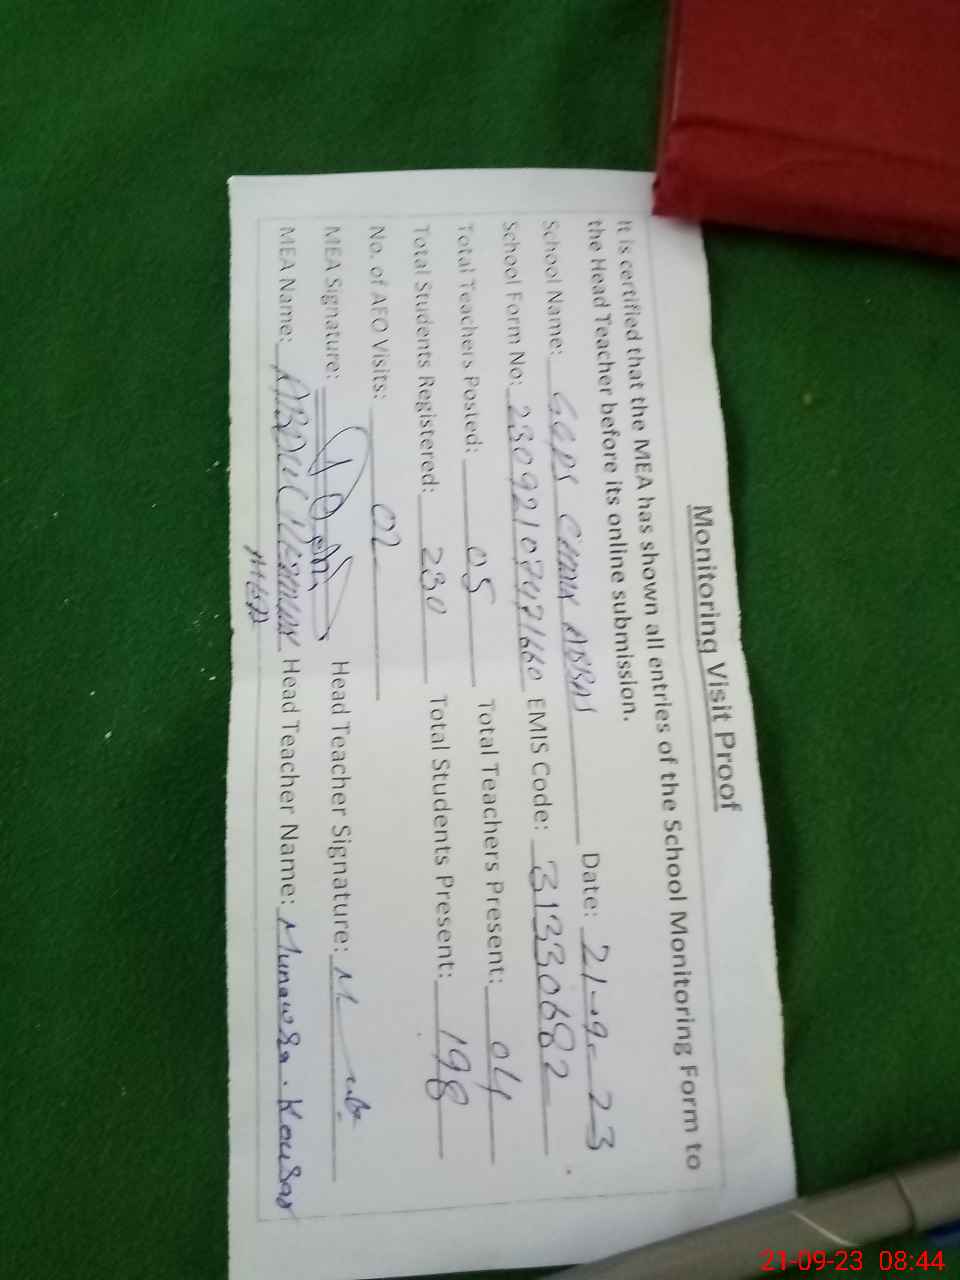 Monitoring Visit Proof
It is certified that the MEA has shown all entries of the School Monitoring Form to
the Head Teacher before its online submission.
School Name: GGPS ABBAS Date: 21-9-23
School Form No: EMIS Code: 31330682
Total Teachers Posted: 05 Total Teachers Present: 04
Total Students Registered: 230 Total Students Present: 198
No. of AFO Visits: 02
MEA Signature: Head Teacher Signature:
MEA Name: ABDUL Head Teacher Name: Munawar Kousar
MEA
21-09-23 08:44